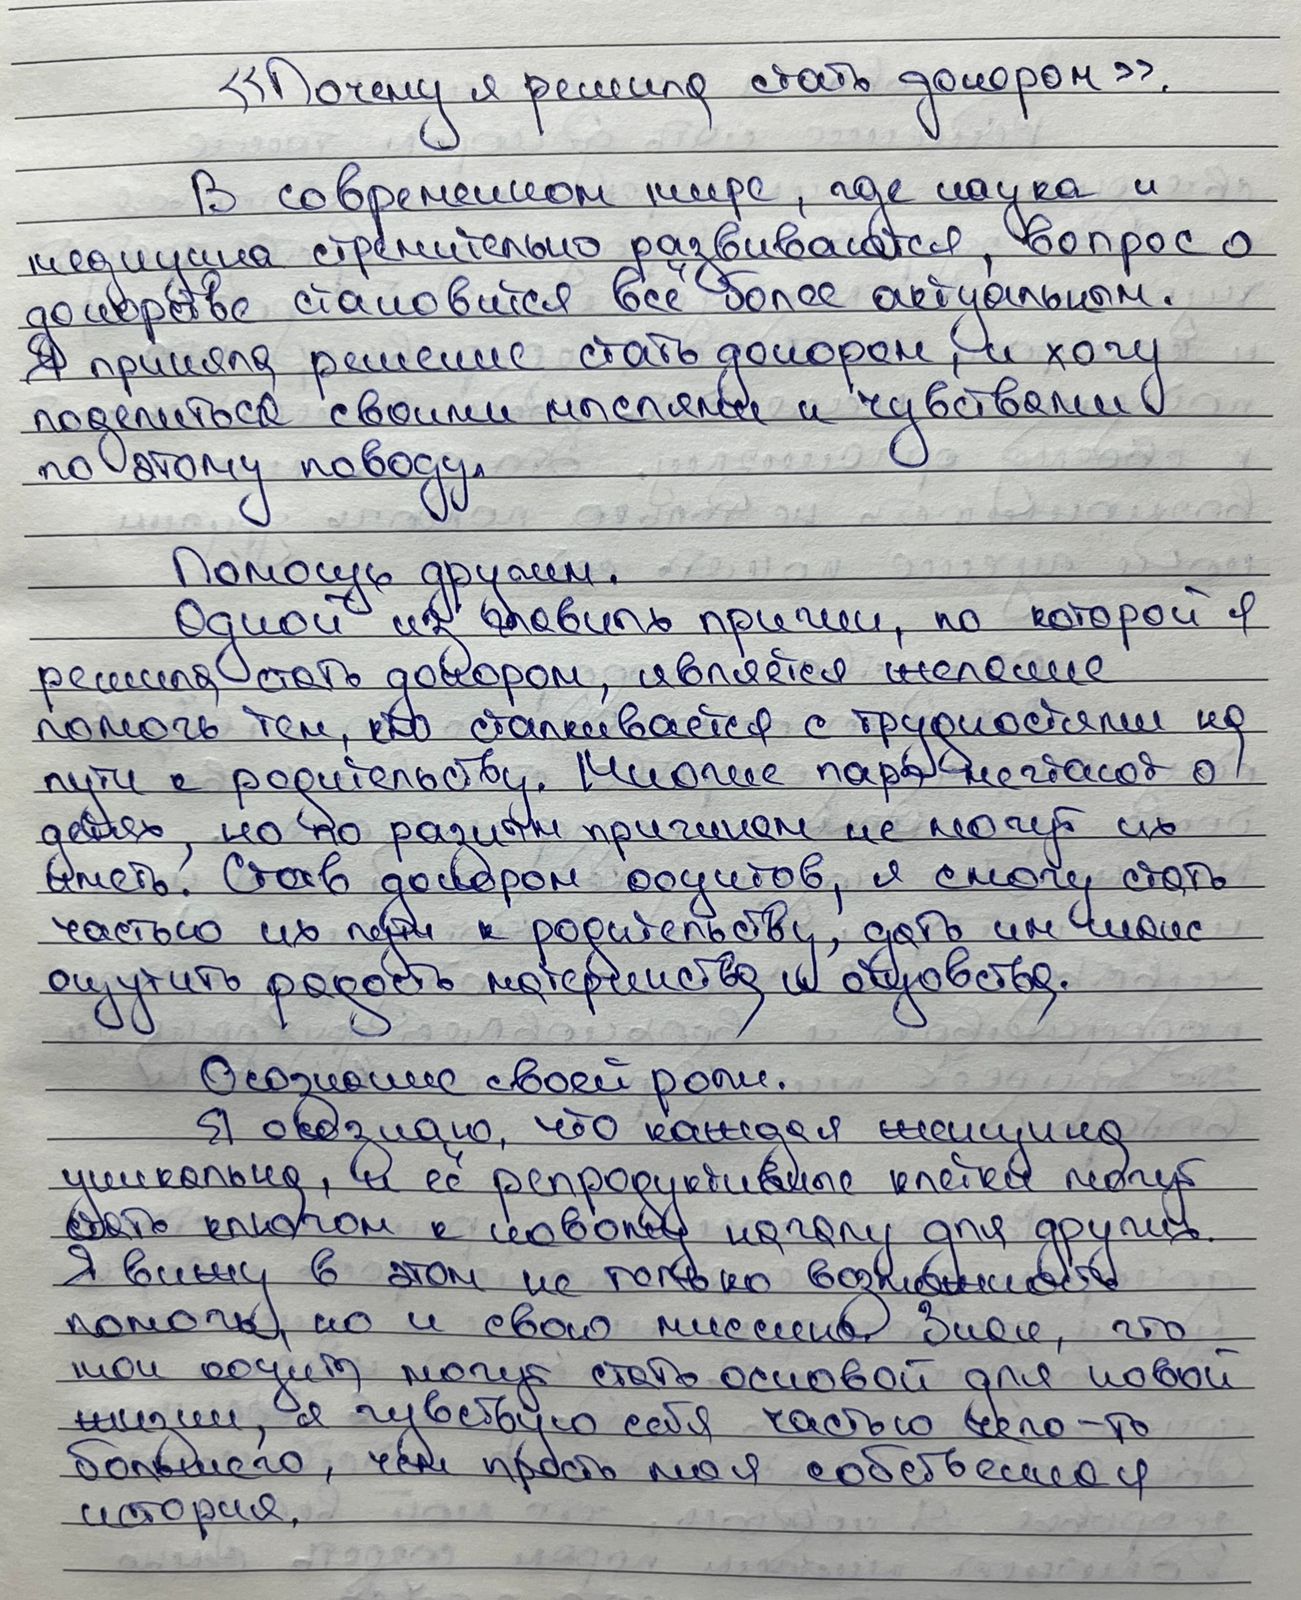 «Почему я решила стать донором».
В современном мире, где наука и
медицина стремительно развиваются, вопрос о
донорстве становится всё более актуальным.
Я приняла решение стать донором, и хочу
поделиться своими мыслями и чувствами
по этому поводу.
Помощь другим.
Одной из главных причин, по которой я
решила стать донором, является желание
помочь тем, кто сталкивается с трудностями на
пути к родительству. Многие пары мечтают о
детях, но по разным причинам не могут их
иметь. Став донором ооцитов, я смогу стать
частью их пути к родительству, дать им шанс
ощутить радость материнства и отцовства.
Осознание своей роли.
Я осознаю, что каждая женщина
уникальна, и её репродуктивные клетки могут
стать ключом к новому началу для других.
Я вижу в этом не только возможность
помочь, но и свою миссию. Зная, что
мои ооциты могут стать основой для новой
жизни, я чувствую себя частью чего-то
большего, чем прость моя собственная
история.